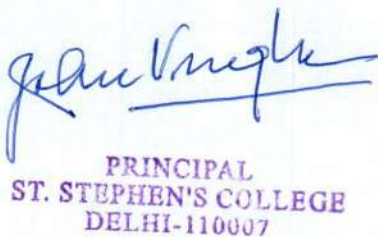 PRINCIPAL
ST. STEPHEN'S COLLEGE
DELHI-110007